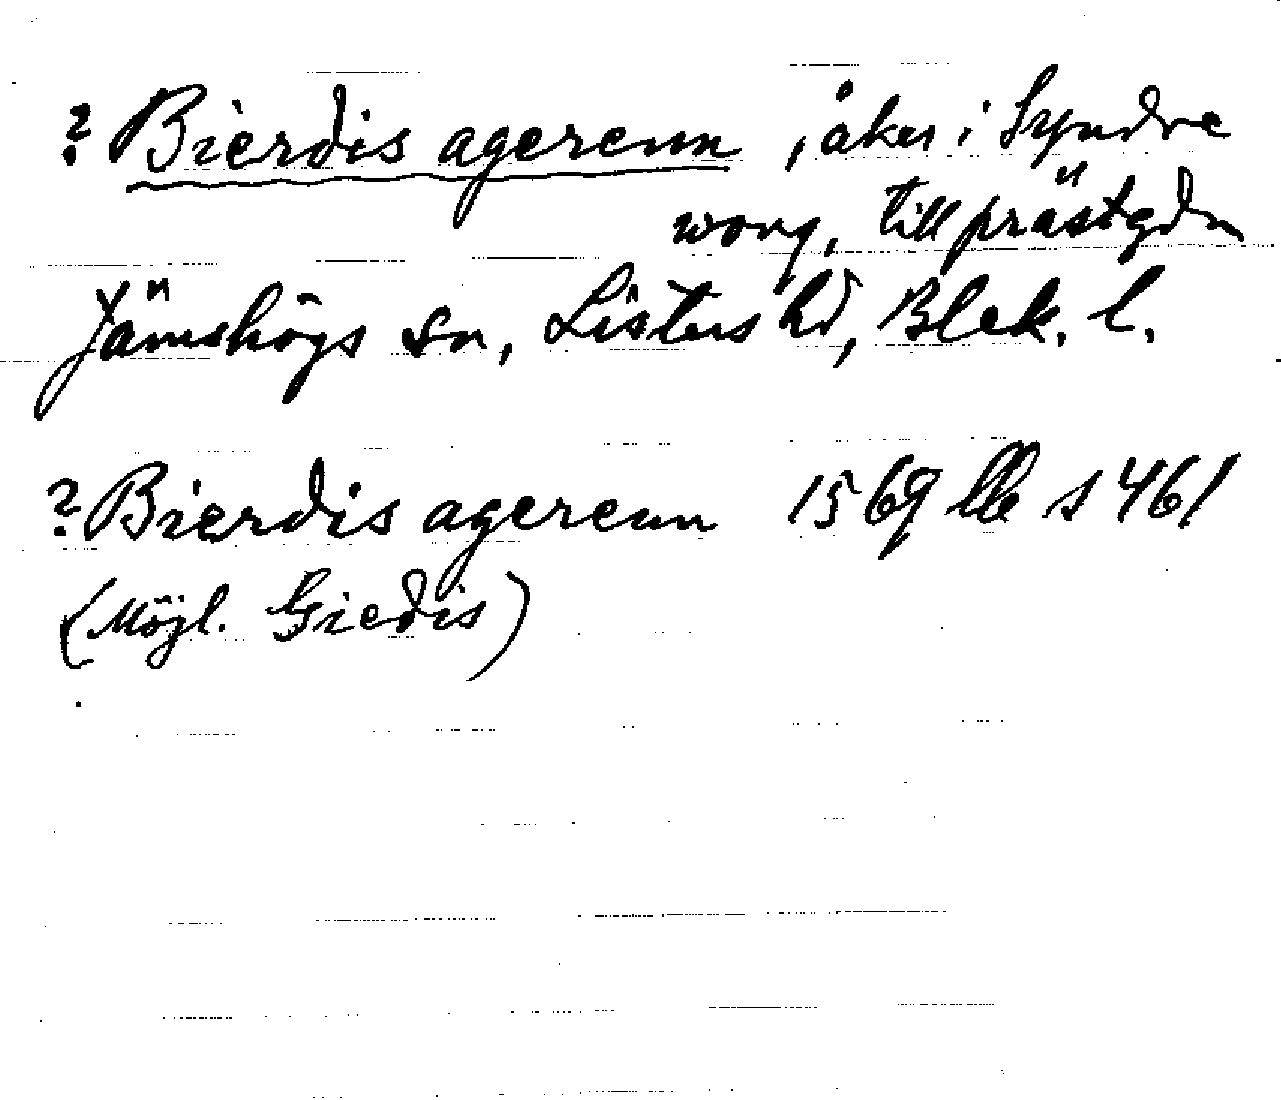 ? Bierdis agerenn, åker i Syndre
wong, till prästgdn
Jämshögs sn, Listers hd, Blek. l.
? Bierdis agerenn 1569 llb s 461
(Möjl. Giedis)